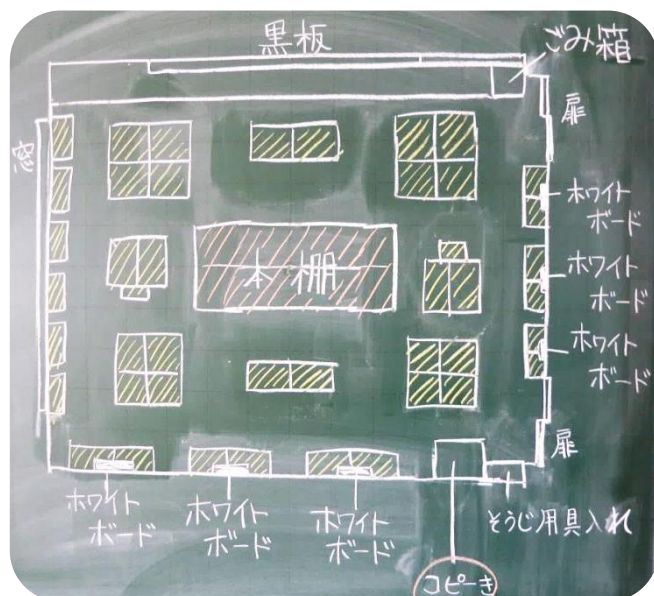 黒板
ごみ箱
窓
扉
ホワイト
ボード
ホワイト
ボード
本棚
ホワイト
ボード
扉
ホワイト
ボード
ホワイト
ボード
ホワイト
ボード
そうじ用具入れ
コピーき